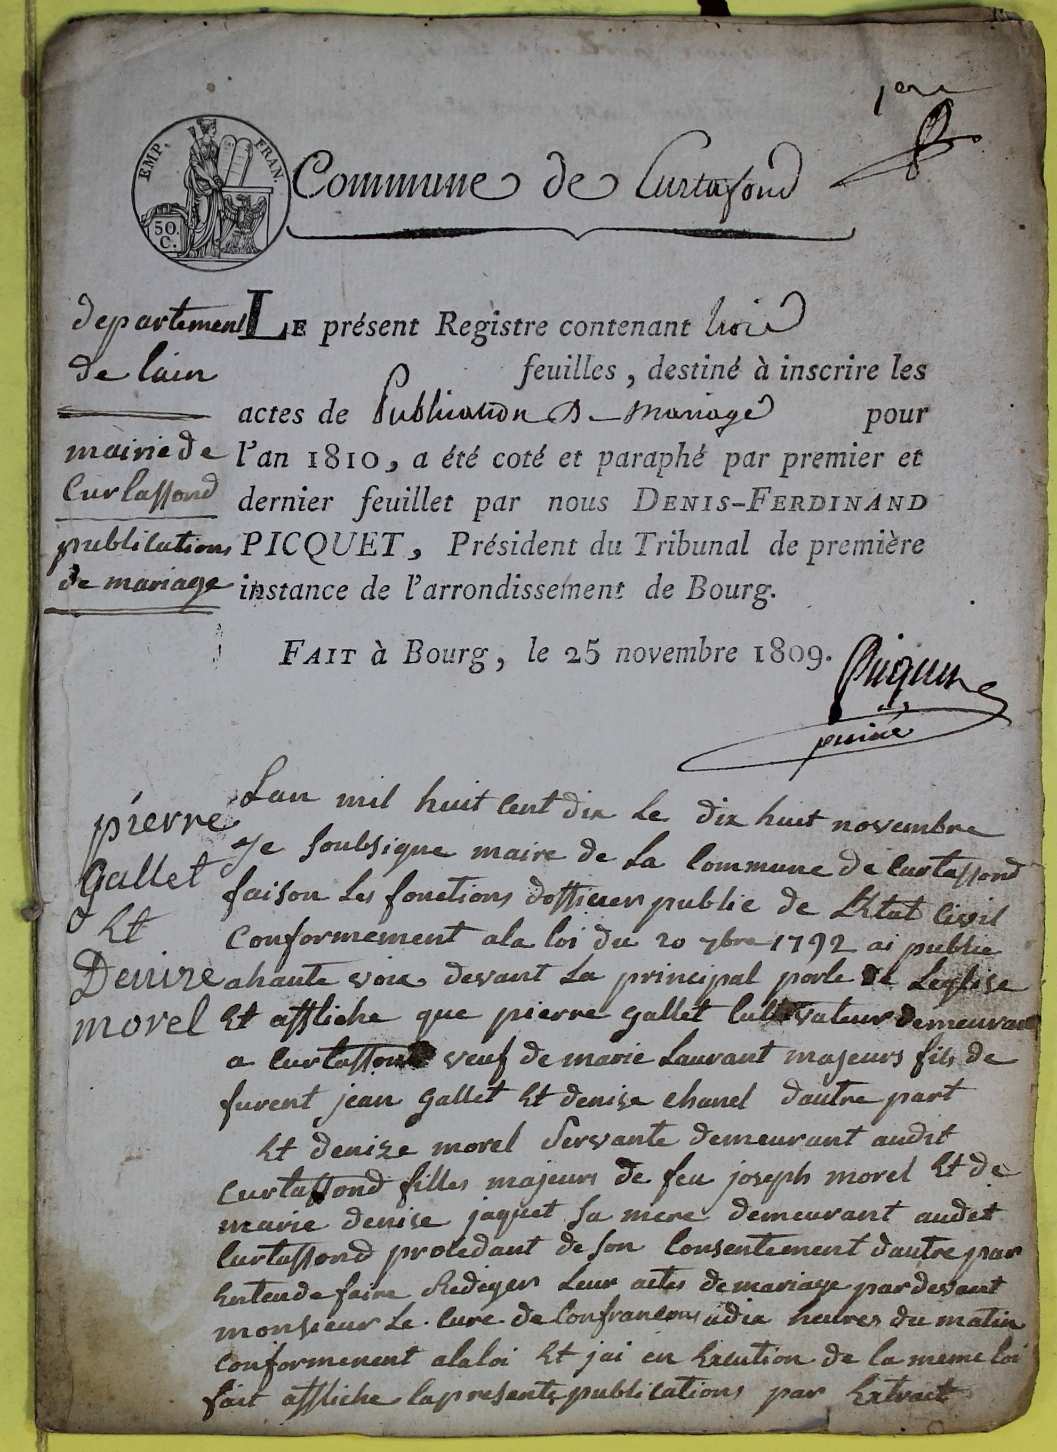 1ere
EMP. FRAN.
50. C.
Commune de Curtafond
departement
de lain
mairie de
Curtaffond
publications
de mariage
LE présent Registre contenant trois
feuilles, destiné à inscrire les
actes de Publication De mariage pour
l'an 1810, a été coté et paraphé par premier et
dernier feuillet par nous DENIS-FERDINAND
PICQUET, Président du Tribunal de première
instance de l'arrondissement de Bourg.
FAIT à Bourg, le 25 novembre 1809.
Picquet
pierre
Gallet
Et
Denize
morel
Lan mil huit cent dix Le dix huit novembre
Je Soubsigne maire de La Commune de Curtaffond
faison Les fonctions dofficier public de LEtat Civil
Conformement ala loi du 20 7bre 1792 ai publie
ahaute voix devant La principal porte de Leglise
Et affliche que pierre gallet Cultivateur demeurant
a Curtaffond veuf de marie Laurant majeurs fils de
furent jean gallet Et denise chanel dautre part
Et denize morel Servante demeurant audit
Curtaffond filles majeurs de feu joseph morel Et de
marie denise jaquet sa mere demeurant audit
Curtaffond procedant de son Consentement dautre par
Entende faire Rediger Leur actes de mariage pardevant
monsieur Le Cure de Confrancons adix heures du matin
Conformement alaloi Et jai en Execution de la meme loi
fait affliche lapresente publications par Extrait